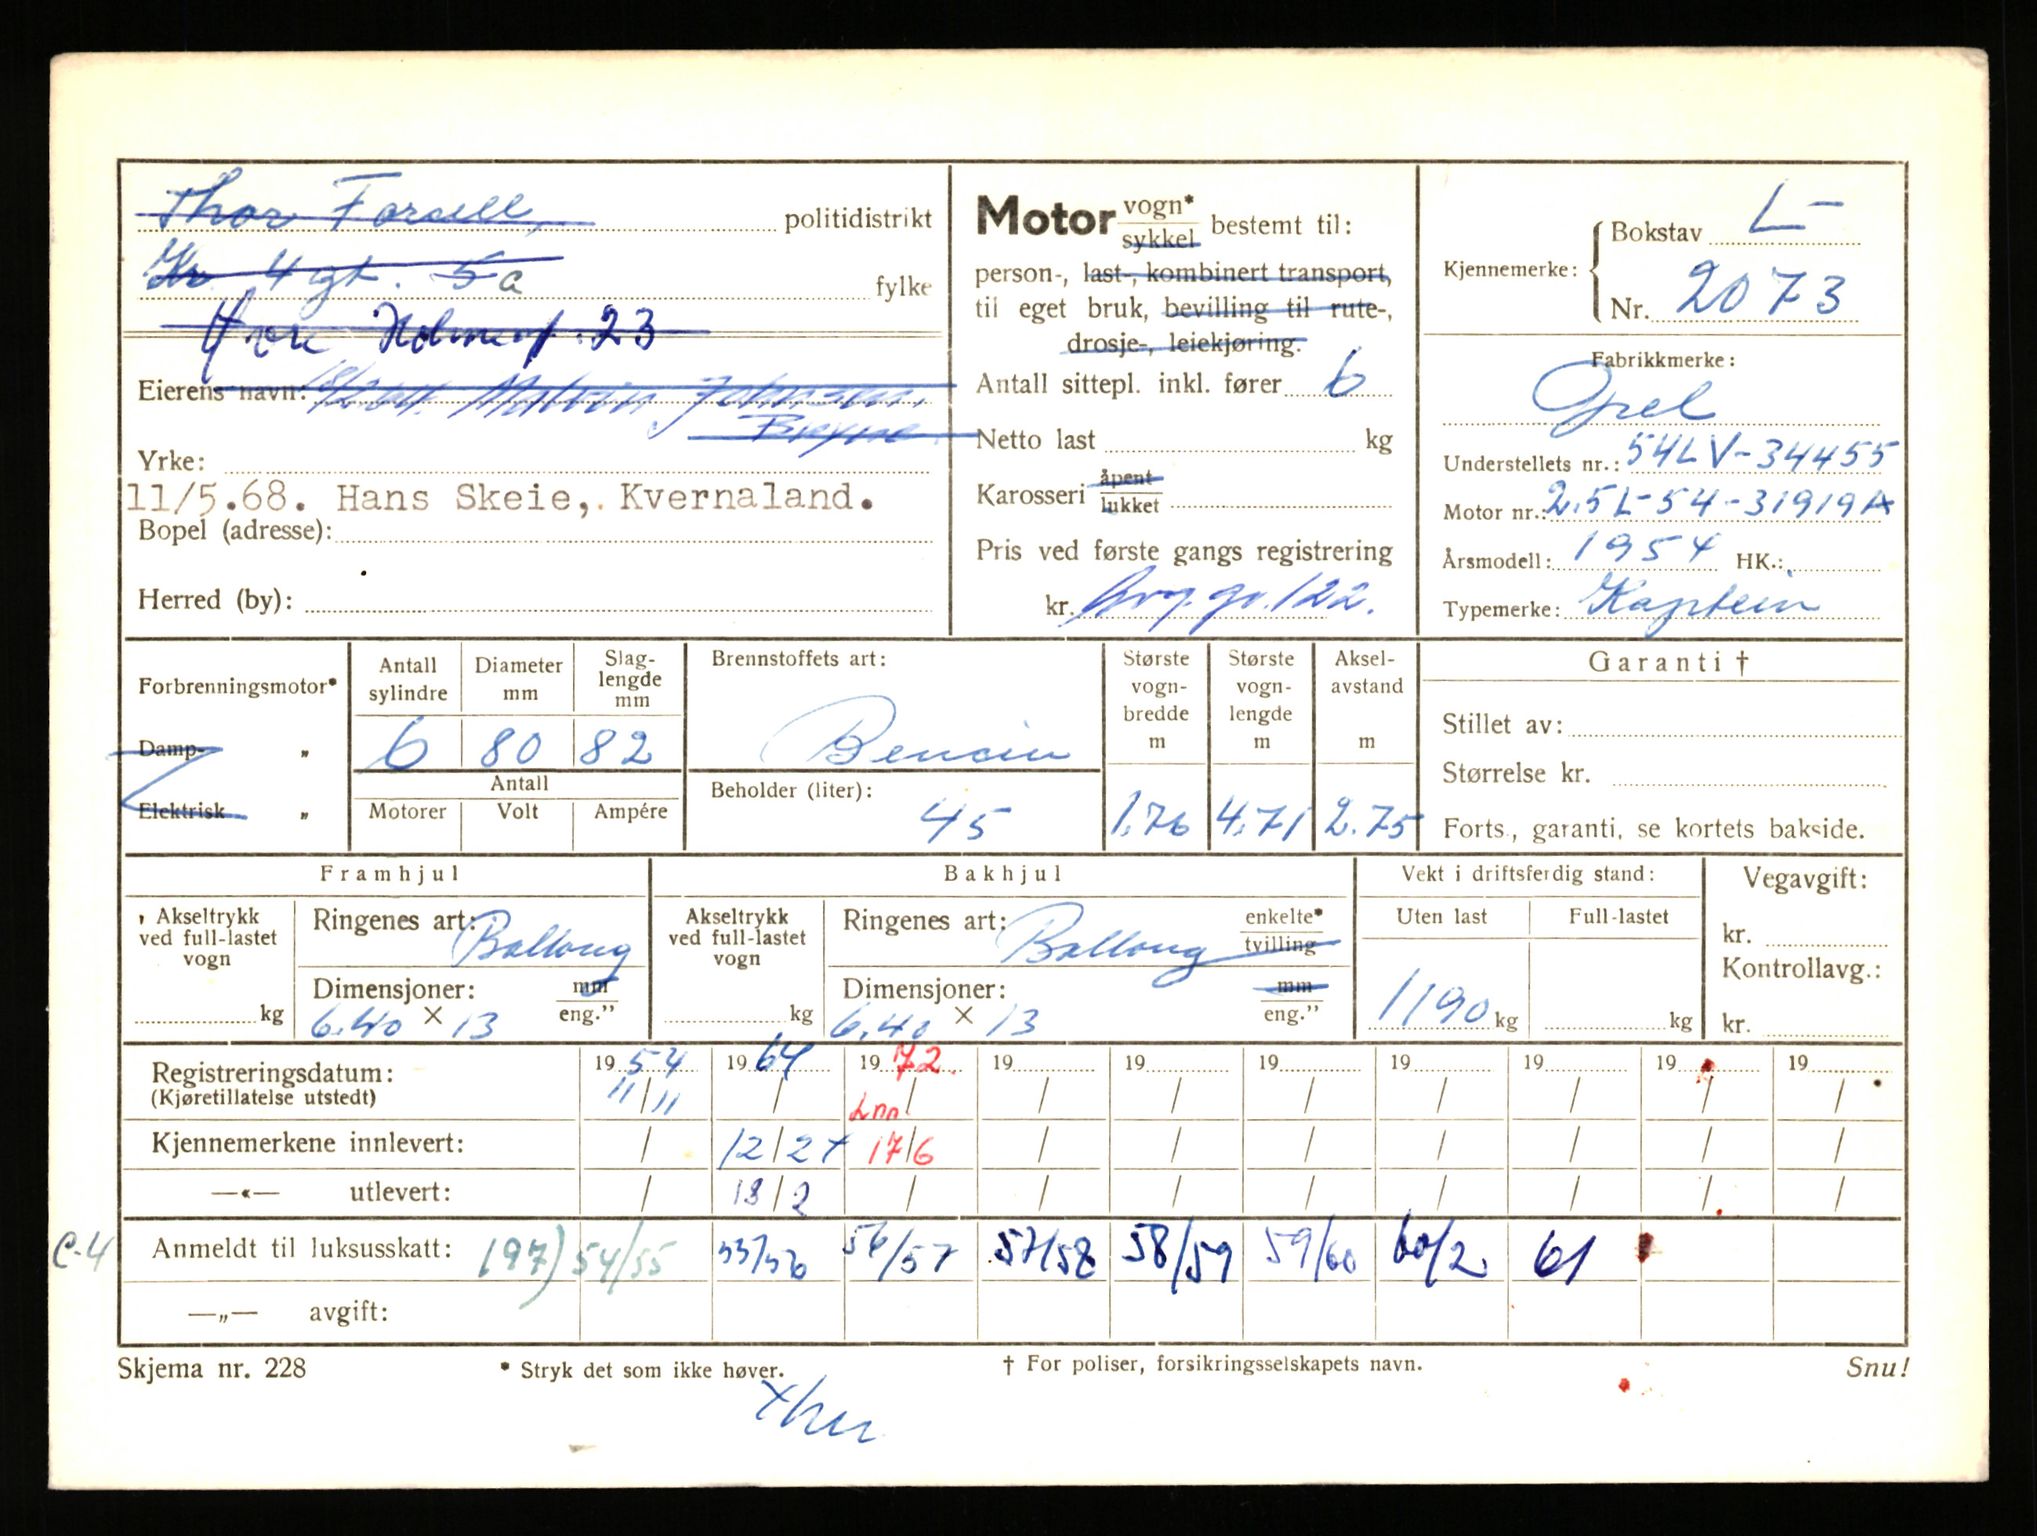 Thor Forsell, politidistrikt
Kr. 4 gt. 5a fylke
Øvre Holmeg. 23
Eierens navn: 18/2 64. Malvin Johnsen,
Bryne.
Yrke:
11/5.68. Hans Skeie, Kvernaland.
Bopel (adresse):
Herred (by):
Motor vogn* sykkel bestemt til:
person-, last-, kombinert transport,
til eget bruk, bevilling til rute-,
drosje-, leiekjøring.
Antall sittepl. inkl. fører 6
Netto last kg
Karosseri åpent lukket
Pris ved første gangs registrering
kr. 122.
Kjennemerke: Bokstav L-
Nr. 2073
Fabrikkmerke:
Opel
Understellets nr.: 54LV-34455
Motor nr.: 2.5L-54-31919A
Årsmodell: 1954 HK.:
Typemerke: Kaptein
Forbrenningsmotor*
Damp- „
Elektrisk „
Antall sylindre Diameter mm Slag-lengde mm
6 80 82
Antall
Motorer Volt Ampére
Brennstoffets art:
Bensin
Beholder (liter):
45
Største vogn-bredde m
1.76
Største vogn-lengde m
4.71
Aksel-avstand m
2.75
Garanti †
Stillet av:
Størrelse kr.
Forts., garanti, se kortets bakside.
Framhjul
Akseltrykk ved full-lastet vogn
kg
Ringenes art: Ballong
Dimensjoner: mm eng.”
6.40 × 13
Bakhjul
Akseltrykk ved full-lastet vogn
kg
Ringenes art: Ballong enkelte* tvilling
Dimensjoner: mm eng.”
6.40 × 13
Vekt i driftsferdig stand:
Uten last Full-lastet
1190 kg kg
Vegavgift:
kr.
Kontrollavg.:
kr.
Registreringsdatum: 19 54 19 64 19 72 19 19 19 19 19 19 19
(Kjøretillatelse utstedt) 11/11 / / / / / / / / /
Kjennemerkene innlevert: / 12/2 + 17/6 / / / / / / /
—«— utlevert: / 18/2 / / / / / / / /
C-4 Anmeldt til luksusskatt: (97) 54/55 55/56 56/57 57/58 58/59 59/60 60/2 61
—„— avgift:
Skjema nr. 228 * Stryk det som ikke høver. † For poliser, forsikringsselskapets navn. Snu!